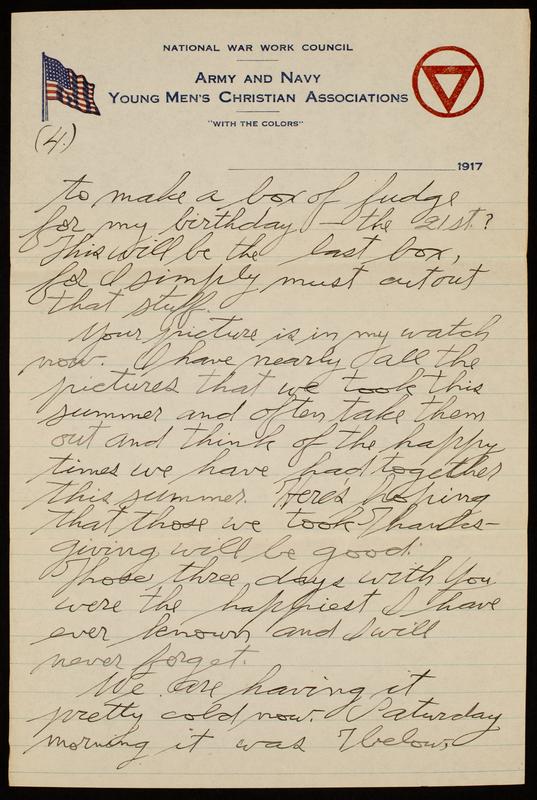 NATIONAL WAR WORK COUNCIL
ARMY AND NAVY
YOUNG MEN'S CHRISTIAN ASSOCIATIONS
"WITH THE COLORS"
(4.)
1917
to make a box of fudge
for my birthday — the 21st?
This will be the last box,
for I simply must cut out
that stuff.
Your picture is in my watch
now. I have nearly all the
pictures that we took this
summer and often take them
out and think of the happy
times we have had together
this summer. Here's hoping
that those we took Thanks-
giving will be good.
Those three days with you
were the happiest I have
ever known and I will
never forget.
We are having it
pretty cold now. Saturday
morning it was 7 below,